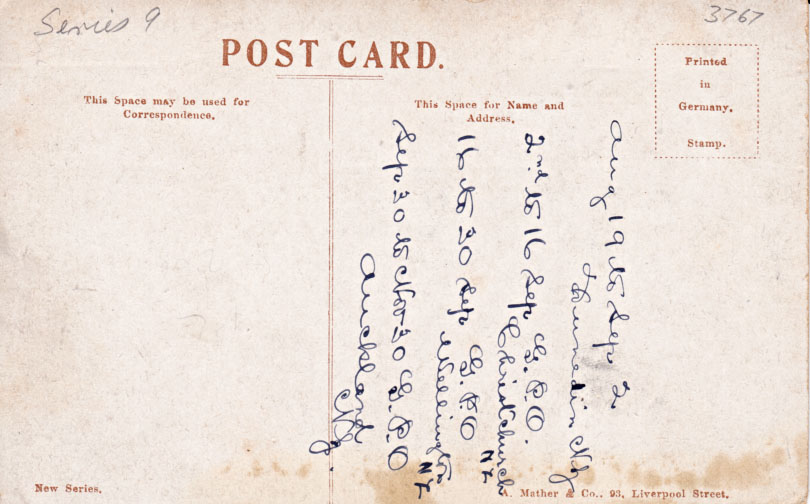 Series 9
3767
POST CARD.
This Space may be used for
Correspondence.
This Space for Name and
Address.
Printed
in
Germany.
Stamp.
Aug 19 to Sep 2
Dunedin NZ
2nd to 16 Sep G.P.O.
Christchurch NZ
16 to 30 Sep G.P.O
Wellington NZ
Sep 30 to Nov 30 G.P.O
Auckland
NZ.
New Series.
A. Mather & Co., 93, Liverpool Street.